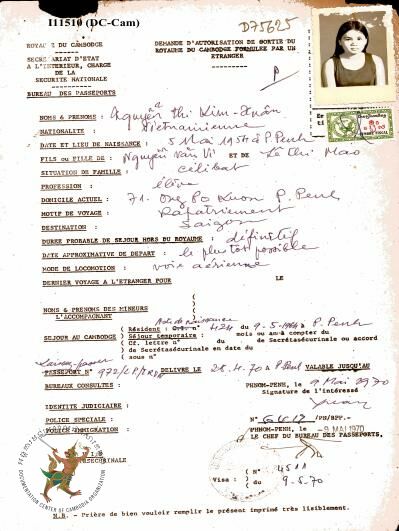 I11510 (DC-Cam)
D75625
ROYAUME DU CAMBODGE
SECRETARIAT D'ETAT
A L'INTERIEUR, CHARGE
DE LA
SECURITE NATIONALE
BUREAU DES PASSEPORTS
DEMANDE D'AUTORISATION DE SORTIE DU
ROYAUME DU CAMBODGE FORMULEE PAR UN
ETRANGER
NOMS & PRENOMS : Nguyên thi Kim-Xuân
NATIONALITE : Vietnamienne
DATE ET LIEU DE NAISSANCE : 5 Mai 1954 à P. Penh
FILS ou FILLE DE : Nguyên Van Vi ET DE Lê thi Mao
SITUATION DE FAMILLE : Célibat
PROFESSION : élève
DOMICILE ACTUEL : 71. Ong P. Penh
MOTIF DE VOYAGE : Rapatriement
DESTINATION : Saigon
DUREE PROBABLE DE SEJOUR HORS DU ROYAUME : définitif
DATE APPROXIMATIVE DE DEPART : le plus tôt possible
MODE DE LOCOMOTION : voie aérienne
DERNIER VOYAGE A L'ETRANGER POUR LE
NOMS & PRENOMS DES MINEURS
L'ACCOMPAGNANT
SEJOUR AU CAMBODGE ( Résident : n° 424 9-5-1964 à P. Penh
( Séjour temporaire : mois ou an à compter du
( Cf. lettre n° du de Secrétasécurinale ou accord
( de Secrétasécurinale en date du
( sous n°
Laissez-passer
PASSEPORT N° 972/LP/ DELIVRE LE 28.4.70 à P Penh VALABLE JUSQU'AU
BUREAUX CONSULTES : PHNOM-PENH, le 9 Mai 1970
Signature de l'intéressé
IDENTITE JUDICIAIRE :
POLICE SPECIALE :
POLICE IMMIGRATION :
N° 6417 /PS/BPP.
PHNOM-PENH, le -9 MAI 1970
LE CHEF DU BUREAU DES PASSEPORTS.
Visa : ( N° 4511
( du 9.5.70
DOCUMENTATION CENTER OF CAMBODIA ORGANIZATION
N.B. - Prière de bien vouloir remplir le présent imprimé très lisiblement.